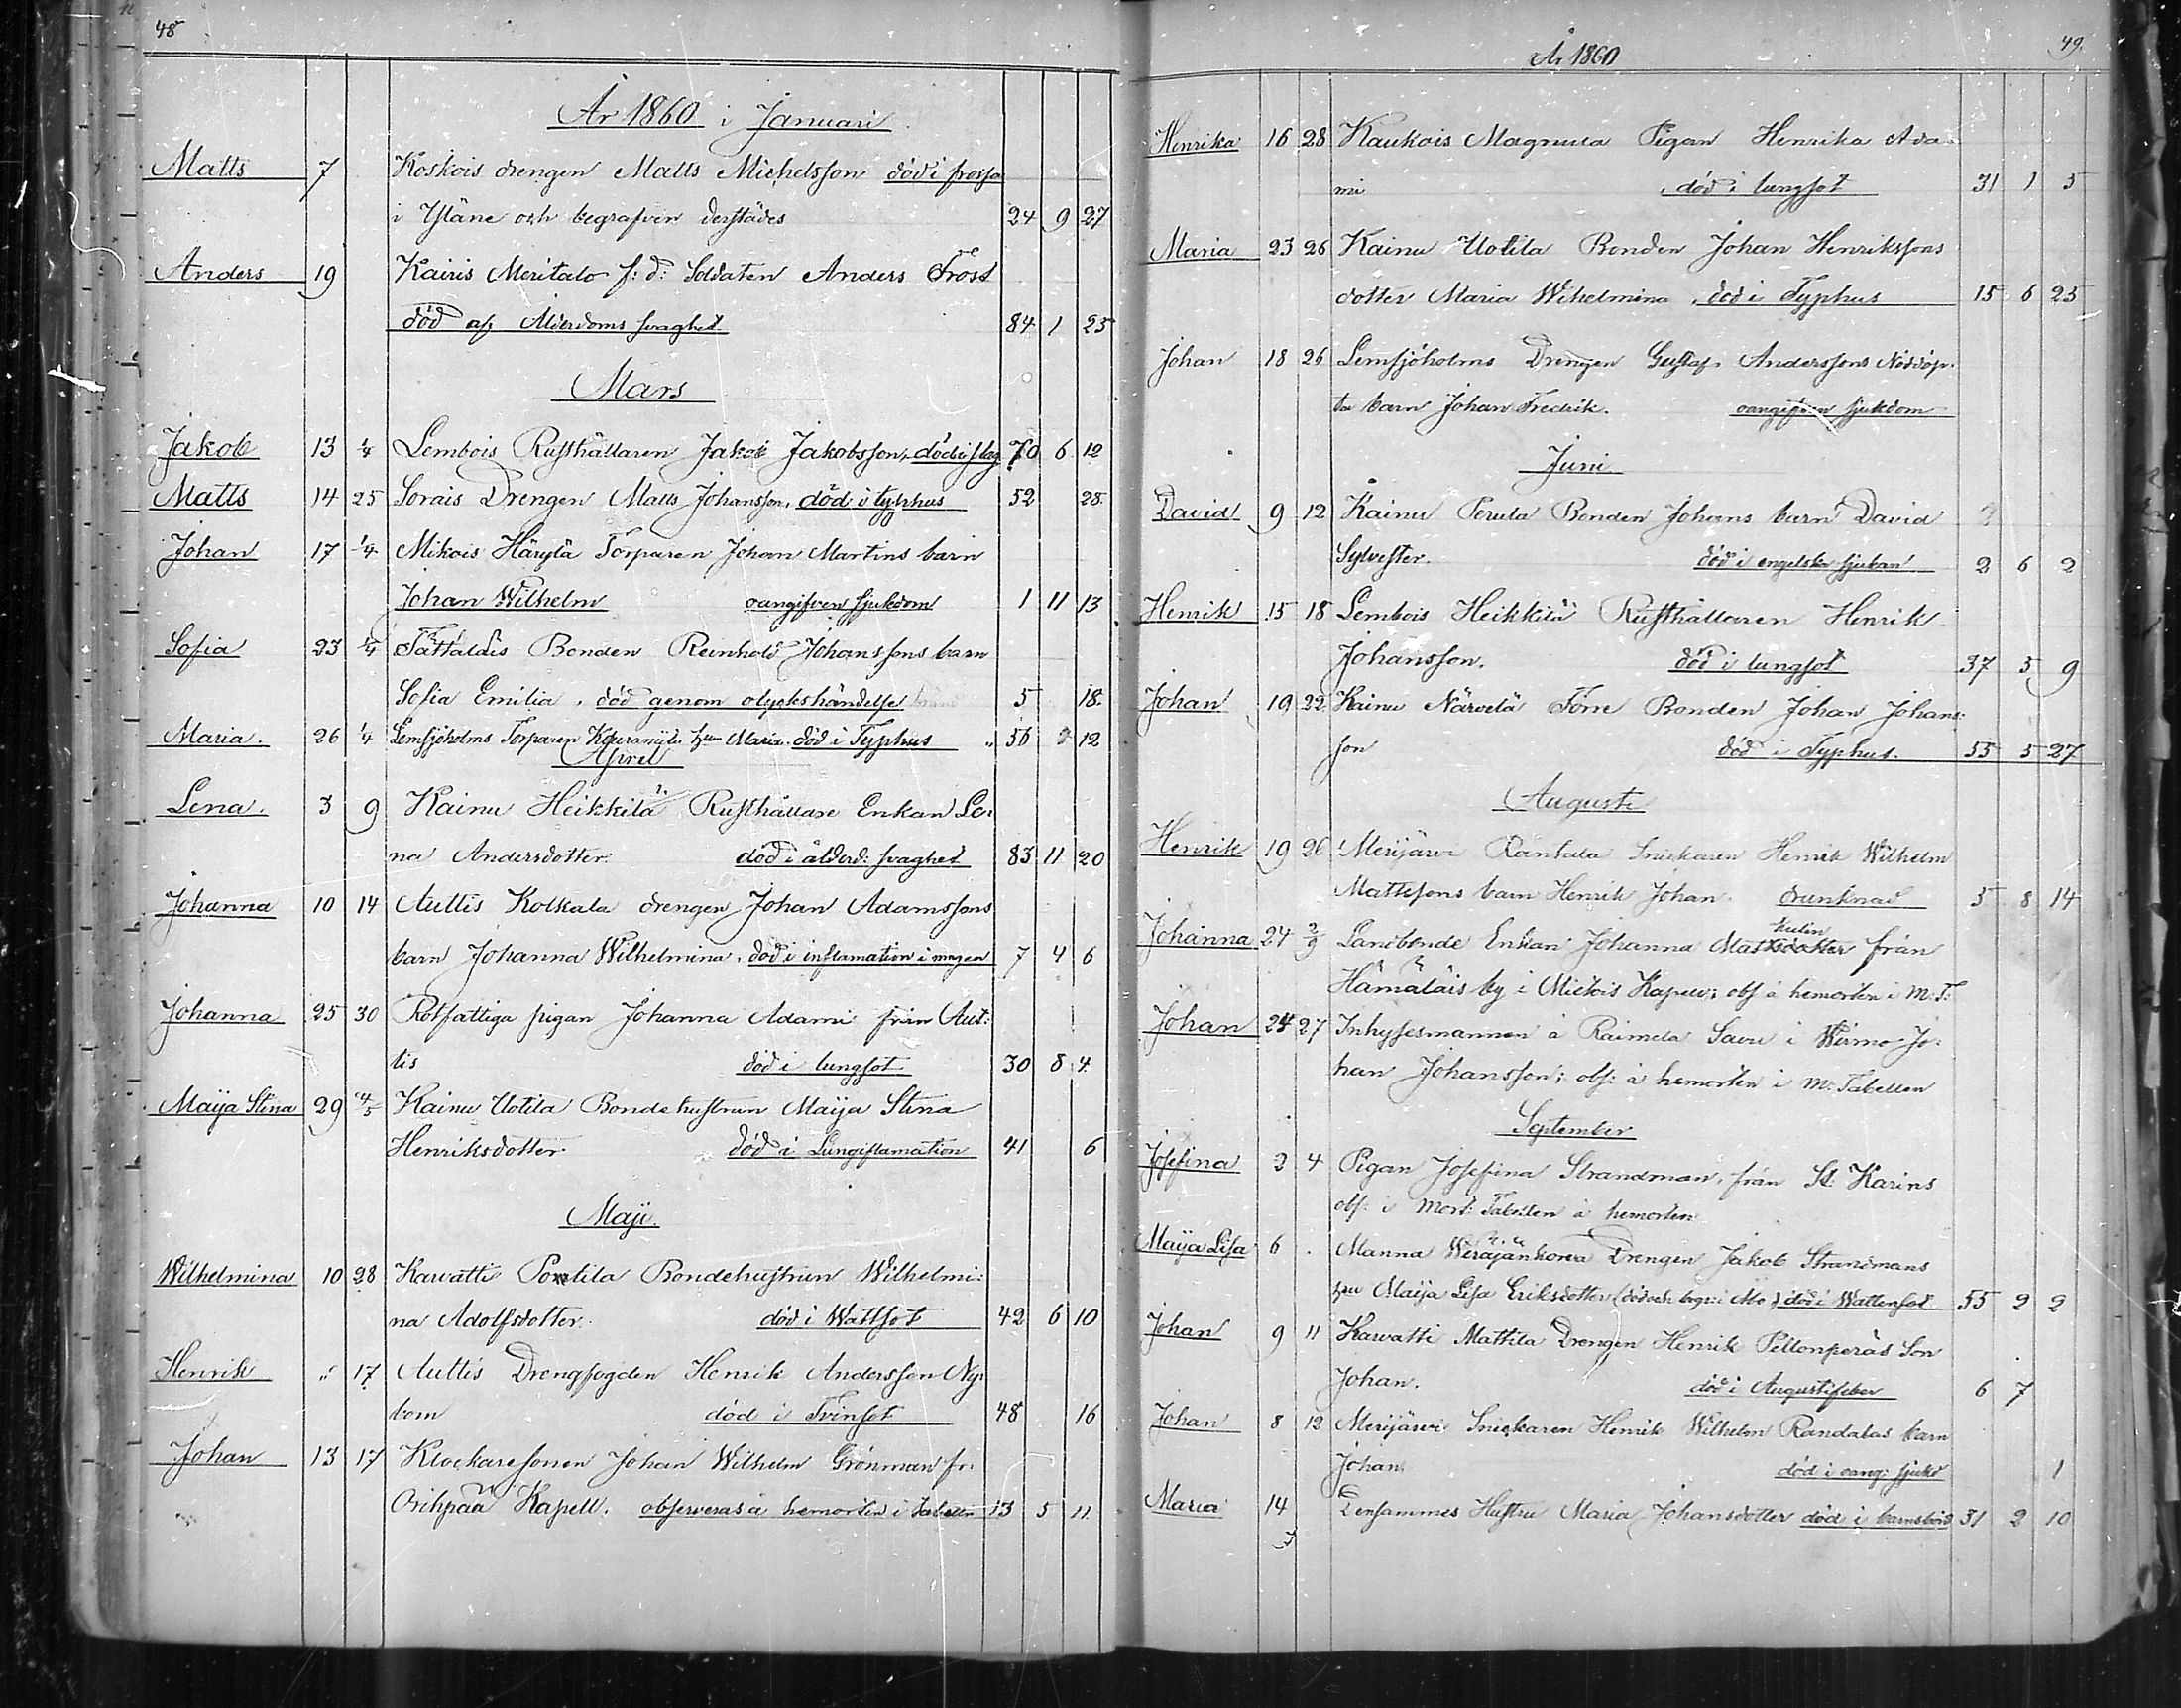 48
År 1860 i Januari
Matts 7 Koskois drengen Matts Michelsson död i frossa
i Yläne och begrafven derstädes 24 9 27
Anders 19 Kairis Meritalo f: d: Soldaten Anders Frost
död af Ålderdoms svaghet 84 1 25
Mars
Jakob 13 1/4 Lembois Rusthållaren Jakob Jakobsson, död i slag 70 6 12
Matts 14 25 Sorais Drengen Matts Johansson, död i typhus 52 28
Johan 17 1/4 Mikois Härylä Torparen Johan Martins barn
Johan Wilhelm oangifven sjukdom 1 11 13
Sofia 23 1/4 Tättäläis Bonden Reinhold Johanssons barn
Sofia Emilia, död genom olyckshändelse 5 18.
Maria. 26 1/4 Lemsjöholms Torparen hu Maria. död i Typhus 56 12
April
Lena. 3 9 Kainu Heikkilä Rusthållare Enkan Le-
na Andersdotter. död i ålderd: svaghet 83 11 20
Johanna 10 14 Auttis Kolkala drengen Johan Adamssons
barn Johanna Wilhelmina, död i inflamation i magen 7 4 6
Johanna 25 30 Rotfattiga pigan Johanna Adami från Aut:
tis död i lungsot 30 8 4
Maija Stina 29 4/5 Kainu Uotila Bondehustrun Maija Stina
Henriksdotter död i Lungiflamation 41 6
Maji
Wilhelmina 10 28 Karvatti Pontila Bondehustrun Wilhelmi:
na Adolfsdotter. död i Wattsot 42 6 10
Henrik " 17 Auttis Drengfogden Henrik Andersson Ny:
bom död i Tvinsot 48 16
Johan 13 17 Klockaresonen Johan Wilhelm Grönman fr.
Orihpää Kapell. observeras å hemorten i Tabellen 13 5 11
År 1860
49.
Henrika 16 28 Kaukois Magnula Pigan Henrika Ada-
mi död i lungsot 31 1 5
Maria 23 26 Kainu Uotila Bonden Johan Henrikssons
dotter Maria Wilhelmina, död i Typhus 15 6 25
Johan 18 26 Lemsjöholms Drengen Gustaf Anderssons Nöddöp-
ta barn Johan Fredrik. oangifven sjukdom
Juni
David 9 12 Kainu Perula Bonden Johans barn David
Sylvester. död i engelska sjukan 2 6 2
Henrik 15 18 Lembois Heikkilä Rusthållaren Henrik
Johansson. död i lungsot 37 5 9
Johan 19 22 Kainu Närvelä Förre Bonden Johan Johans-
son död i Typhus. 55 5 27
Augusti
Henrik 19 26 Merijärvi Rantala Snickaren Henrik Wilhelm
Mattssons barn Henrik Johan. drunknad 5 8 14
Johanna 24 2/9 Landbonde Enkan Johanna Mattsdotter från
Hämäläis by i Mietois Kapell; obs å hemorten i M: T:
Johan 24 27 Inhysesmannen å Raimela Sauri i Wirmo Jo-
han Johansson; obs: å hemorten i M: Tabellen
September
Josefina 2 4 Pigan Josefina Strandman, från St: Karins
obs: i Mort: Tabellen å hemorten
Maija Lisa 6 Manna Weräjänkorva Drengen Jakob Strandmans
hu Maija Lisa Eriksdotter (död och begr: i Åbo) död i Wattensot 55 2 2
Johan 9 11 Karvatti Mattila Drengen Henrik Peltonperäs Son
Johan. död i Augustifeber 6 7
Johan 8 12 Merijärvi Snickaren Henrik Wilhelm Randalas barn
Johan död i oang: sjukd 1
Maria 14 Densammes Hustru Maria Johansdotter död i barnsbörd 31 2 10